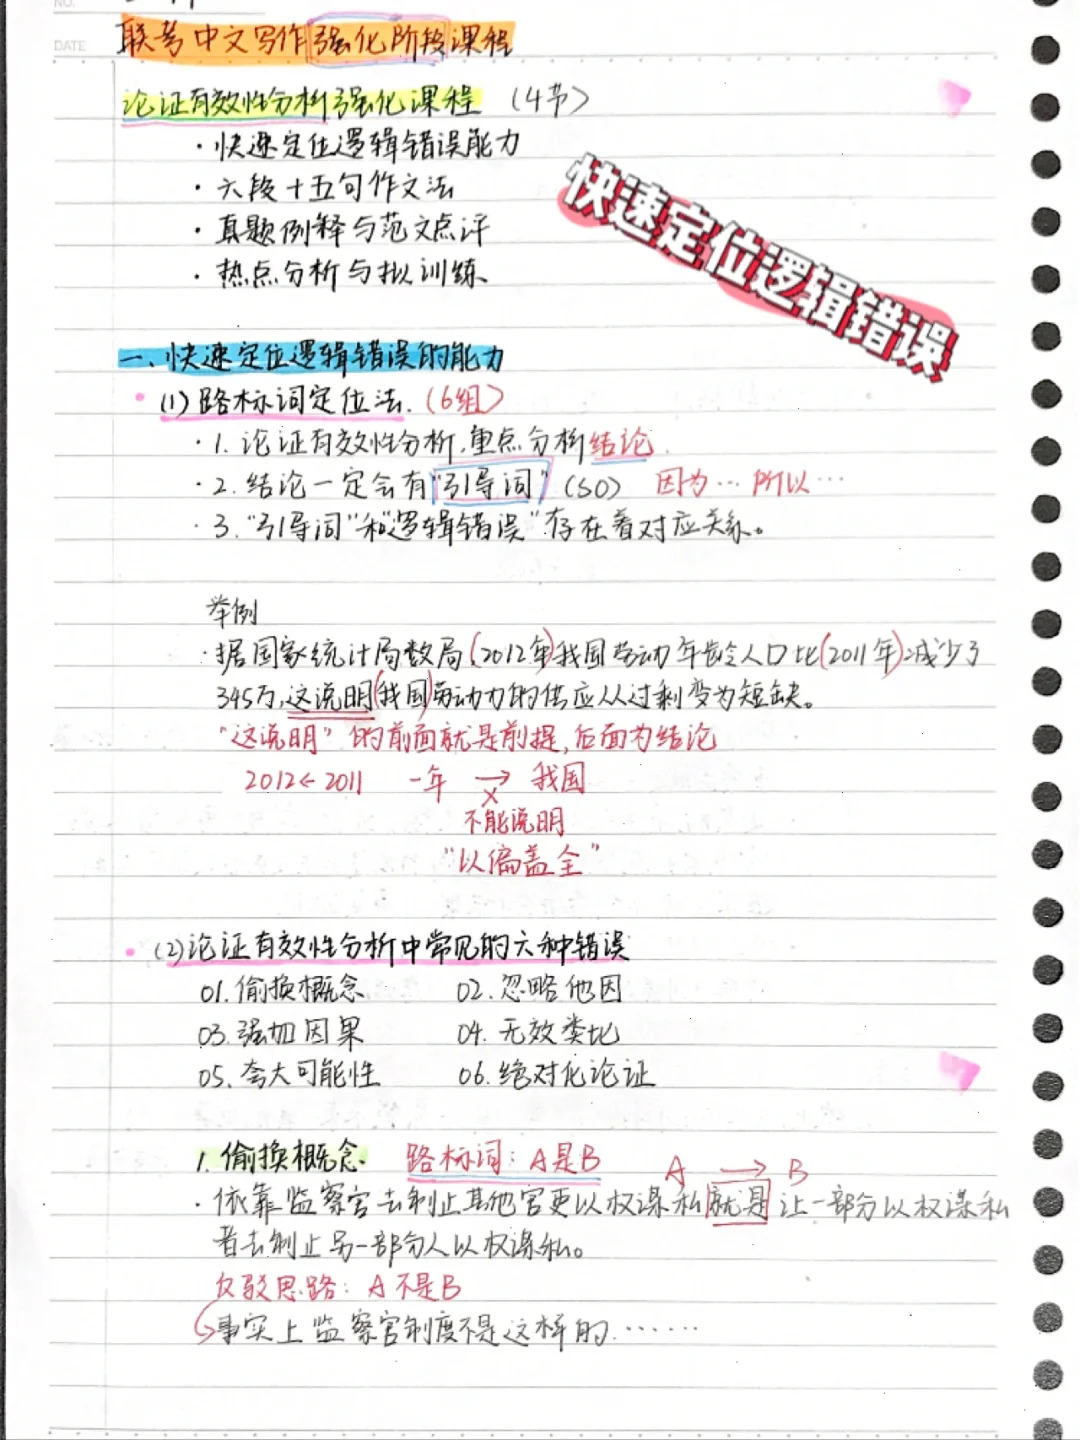 NO.
DATE
联考中文写作强化阶段课程
论证有效性分析强化课程 (4节)
·快速定位逻辑错误能力
·六段十五句作文法
·真题例释与范文点评
·热点分析与拟训练
快速定位逻辑错误
一、快速定位逻辑错误的能力
(1)路标词定位法.(6组)
·1.论证有效性分析,重点分析结论.
·2.结论一定会有"引导词"(SO) 因为…所以…
·3."引导词"和"逻辑错误"存在着对应关系。
举例
·据国家统计局数局,(2012年)我国劳动年龄人口比(2011年)减少了
345万,这说明(我国)劳动力的供应从过剩变为短缺。
"这说明"的前面就是前提,后面为结论
2012←2011 一年 → 我国
×
不能说明
"以偏盖全"
(2)论证有效性分析中常见的六种错误
01.偷换概念 02.忽略他因
03.强加因果 04.无效类比
05.夸大可能性 06.绝对化论证
1.偷换概念. 路标词:A是B A → B
·依靠监察官去制止其他官吏以权谋私就是让一部分以权谋私
者去制止另一部分人以权谋私。
反驳思路:A不是B
事实上监察官制度不是这样的……